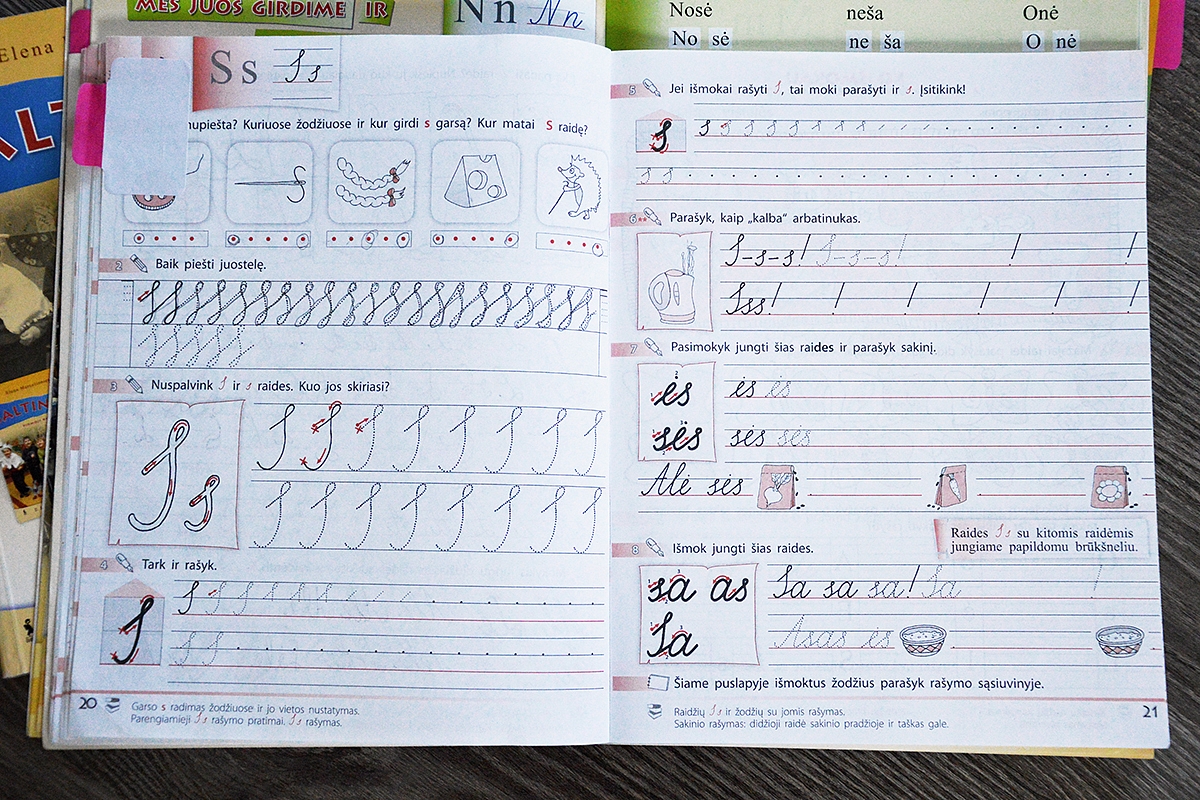 Elena
MES JUOS GIRDIME IR
N n N n
Nosė neša Onė
No sė ne ša O nė
S s S s
nupiešta? Kuriuose žodžiuose ir kur girdi s garsą? Kur matai S raidę?
2 Baik piešti juostelę.
3 Nuspalvink S ir s raides. Kuo jos skiriasi?
S s
4 Tark ir rašyk.
S
20
Garso s radimas žodžiuose ir jo vietos nustatymas.
Parengiamieji S s rašymo pratimai. S s rašymas.
5 Jei išmokai rašyti S, tai moki parašyti ir s. Įsitikink!
s
s s
6** Parašyk, kaip „kalba“ arbatinukas.
S-s-s! S-s-s! ! !
Sss! ! ! ! ! !
7 Pasimokyk jungti šias raides ir parašyk sakinį.
ės ės ės
sės sės sės
Alė sės
Raides S s su kitomis raidėmis
jungiame papildomu brūkšneliu.
8 Išmok jungti šias raides.
sa as Sa sa sa! Sa !
Sa Asas ės
Šiame puslapyje išmoktus žodžius parašyk rašymo sąsiuvinyje.
Raidžių S s ir žodžių su jomis rašymas.
Sakinio rašymas: didžioji raidė sakinio pradžioje ir taškas gale.
21